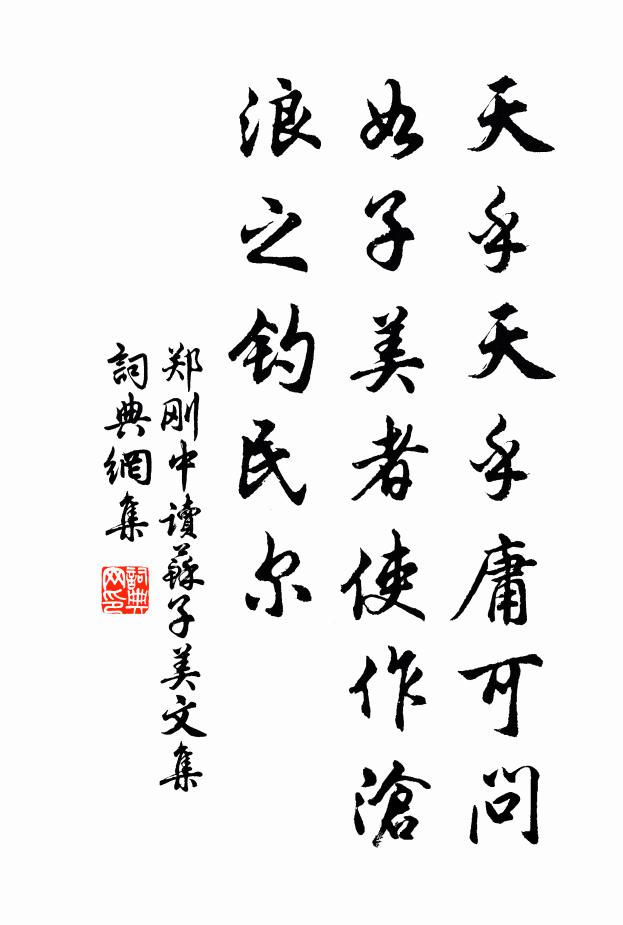 天乎天乎庸可問
如子美者使作滄
浪之钓民尔
郑刚中讀蘇子美文集
詞典網集
詞典
网印